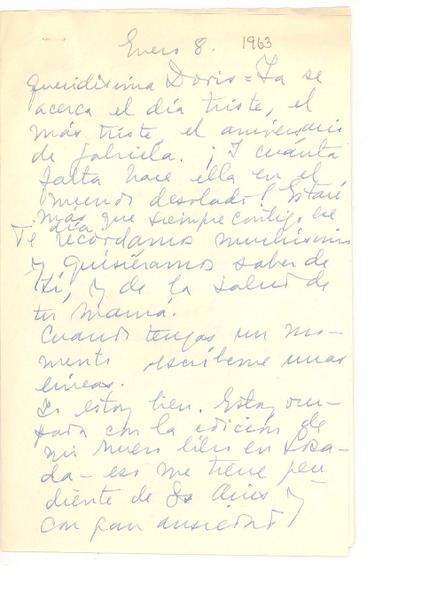 Enero 8. 1963
queridísima Doris = Ya se
acerca el día triste, el
más triste, el aniversario
de Gabriela. ¡Y cuánta
falta hace ella en el
mundo desolado! Estaré
más que siempre contigo ese
día
Te recordamos muchísimo
y quisiéramos saber de
tí, y de la salud de
tu mamá.
Cuando tengas un mo-
mento escríbeme unas
líneas.
Yo estoy bien. Estoy ocu-
pada con la edición de
mi nuevo libro en Losa-
da - eso me tiene pen
diente de Bs Aires y
con gran ansiedad